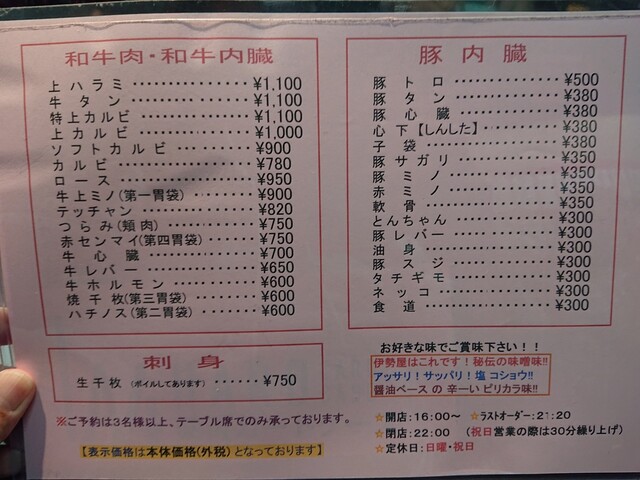 和牛肉・和牛内臓
上ハラミ ¥1,100
牛タン ¥1,100
特上カルビ ¥1,100
上カルビ ¥1,000
ソフトカルビ ¥900
カルビ ¥780
ロース ¥950
牛上ミノ(第一胃袋) ¥900
テッチャン ¥820
つらみ(頬肉) ¥750
赤センマイ(第四胃袋) ¥750
牛心臓 ¥700
牛レバー ¥650
牛ホルモン ¥600
焼千枚(第三胃袋) ¥600
ハチノス(第二胃袋) ¥600
刺身
生千枚(ボイルしてあります) ¥750
※ご予約は3名様以上、テーブル席でのみ承っております。
【表示価格は本体価格(外税)となっております】
豚内臓
豚トロ ¥500
豚タン ¥380
豚心臓 ¥380
心下【しんした】 ¥380
子袋 ¥380
豚サガリ ¥350
豚ミノ ¥350
赤ミノ ¥350
軟骨 ¥350
とんちゃん ¥300
豚レバー ¥300
油身 ¥300
豚スジ ¥300
タチギモ ¥300
ネッコ ¥300
食道 ¥300
お好きな味でご賞味下さい!!
伊勢屋はこれです!秘伝の味噌味!!
アッサリ!サッパリ!塩コショウ!!
醤油ベースの辛ーいピリカラ味!!
☆開店:16:00〜 ☆ラストオーダー:21:20
☆閉店:22:00 (祝日営業の際は30分繰り上げ)
☆定休日:日曜・祝日